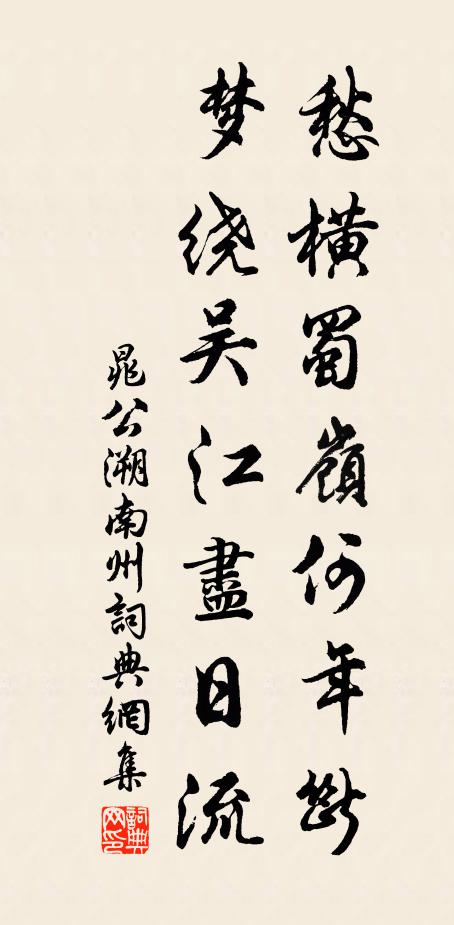 愁橫蜀嶺何年斷
梦绕吴江盡日流
晁公溯南州詞典網集
詞典网印